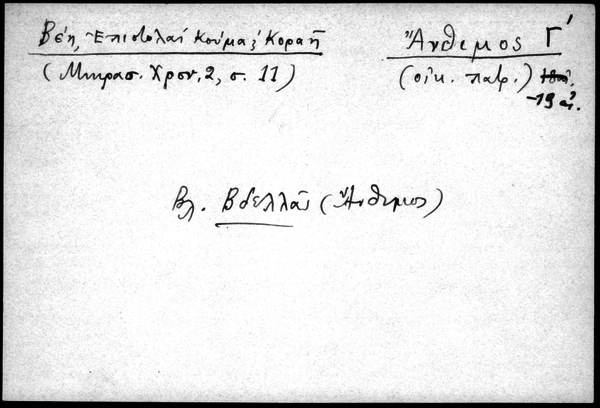 Βέη, Ἐπιστολαί Κούμα & Κοραῆ
(Μικρασ. Χρον, 2, σ. 11)
Ἄνθιμος Γ΄
(οἰκ. πατρ.) 18ου.
-19 αἰ.
Βλ. Βδελλᾶς (Ἄνθιμος)